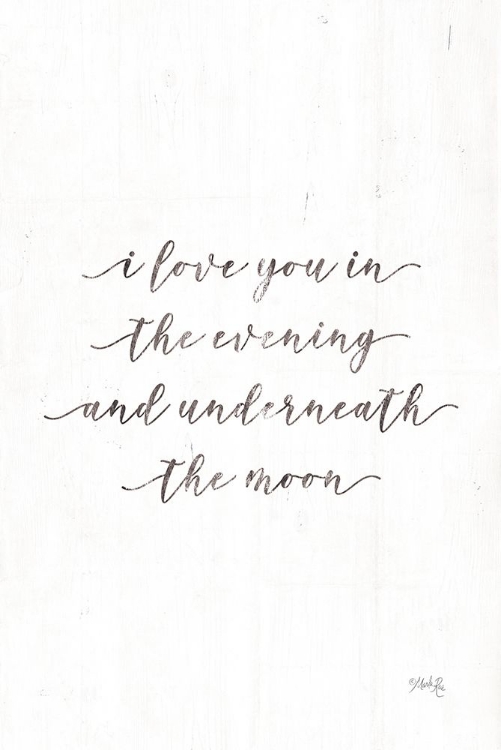 i love you in
the evening
and underneath
the moon
© Marla Rae